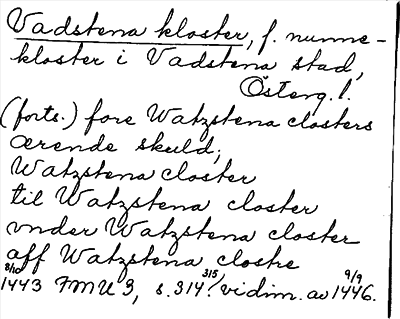 Vadstena kloster, f. nunne-
kloster i Vadstena stad,
Österg. l.
(forts.) fore Watzstena closters
ærende skuld;
Watzstena closter
til Watzstena closter
vnder Watzstena closter
aff Watzstena clostre
8/10 1443 FMU 3, s. 314. 315, vidim. av 9/9 1446.